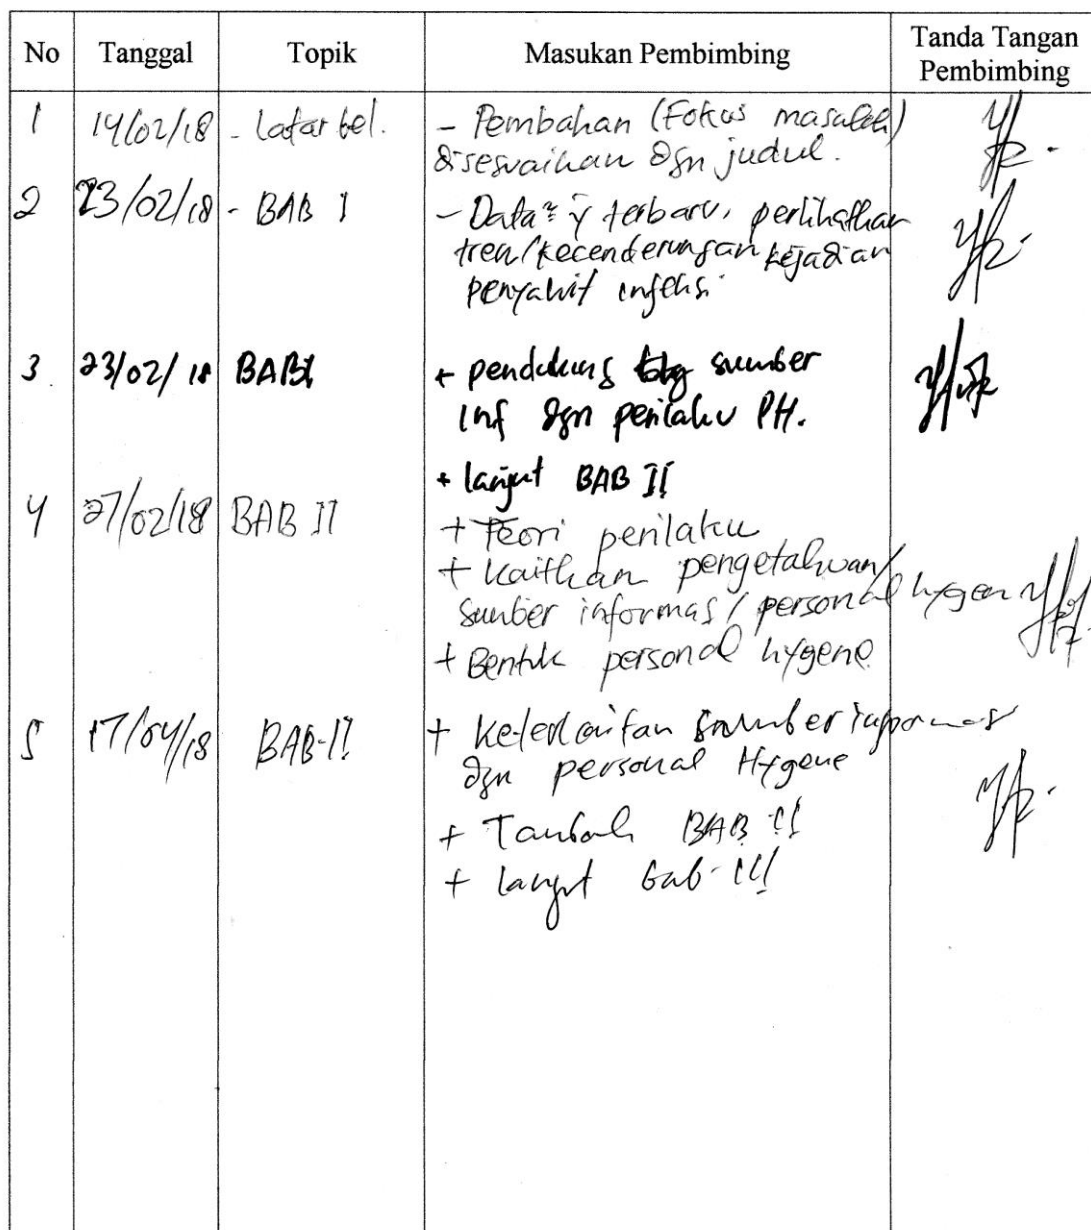 No Tanggal Topik Masukan Pembimbing Tanda Tangan Pembimbing
1 14/02/18 - Latar bel. - Pembahan (Fokus masalah)
disesuaikan dgn judul.
2 23/02/18 - BAB I - Data² y terbaru, perlihatkan
tren/kecenderungan kejadian
penyakit infeksi.
3. 23/02/18 BAB I + pendukung sumber
inf dgn perilaku PH.
+ lanjut BAB II
4 27/02/18 BAB II + Teori perilaku
+ Kaitkan pengetahuan/
sumber informas/personal hygen
+ Bentuk personal hygene
5 17/04/18 BAB-II + Keterkaitan sumber informas
dgn personal Hygene
+ Tambah BAB II
+ lanjut bab-III